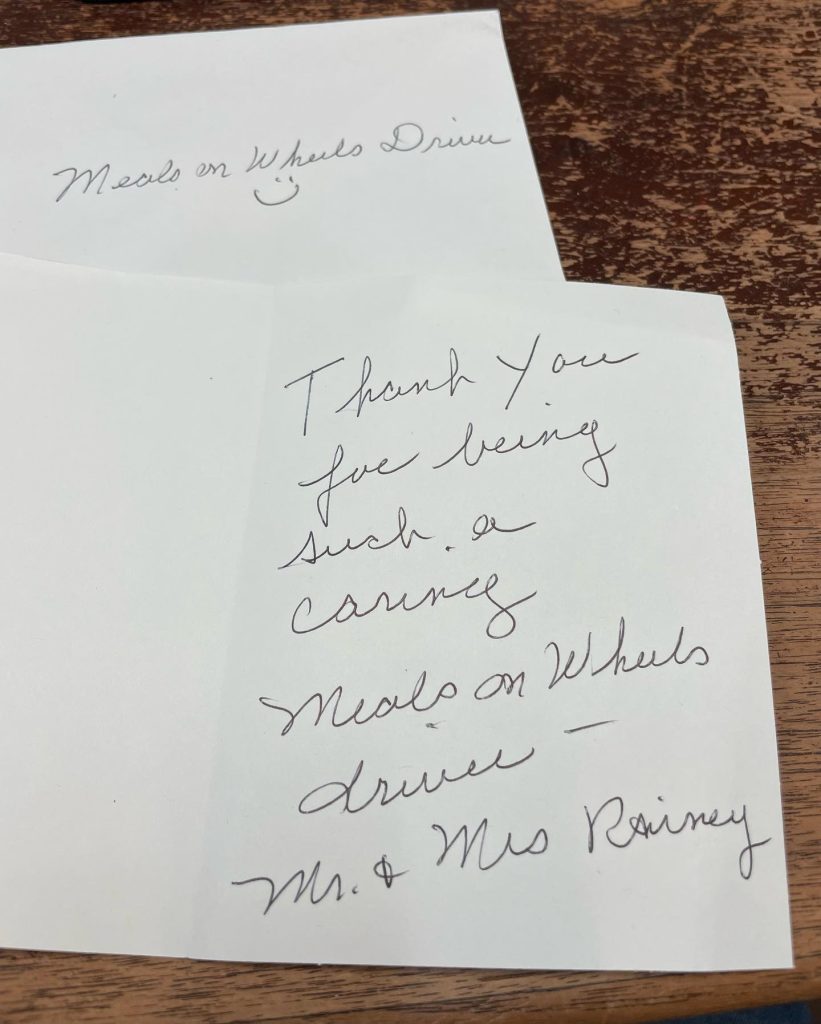 Meals on Wheels Driver
Thank You
for being
such a
caring
Meals on Wheels
driver —
Mr. & Mrs Rainey